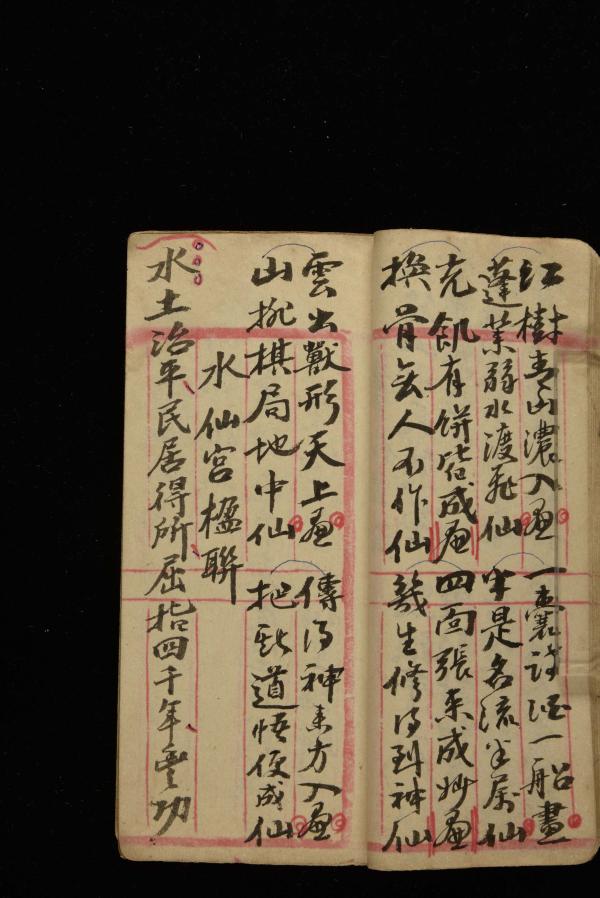 紅樹青山濃入畫　一囊詩酒一船畫
蓬萊弱水渡飛仙　半是名流半屬仙
充飢有餅皆成画　四面張來成妙画
換骨無人不作仙　幾生修得到神仙
雲出獸形天上画　傳得神來方入画
山排棋局地中仙　把到道悟便成仙
水仙宮楹聯
水土治平民居得所屈指四千年豐功